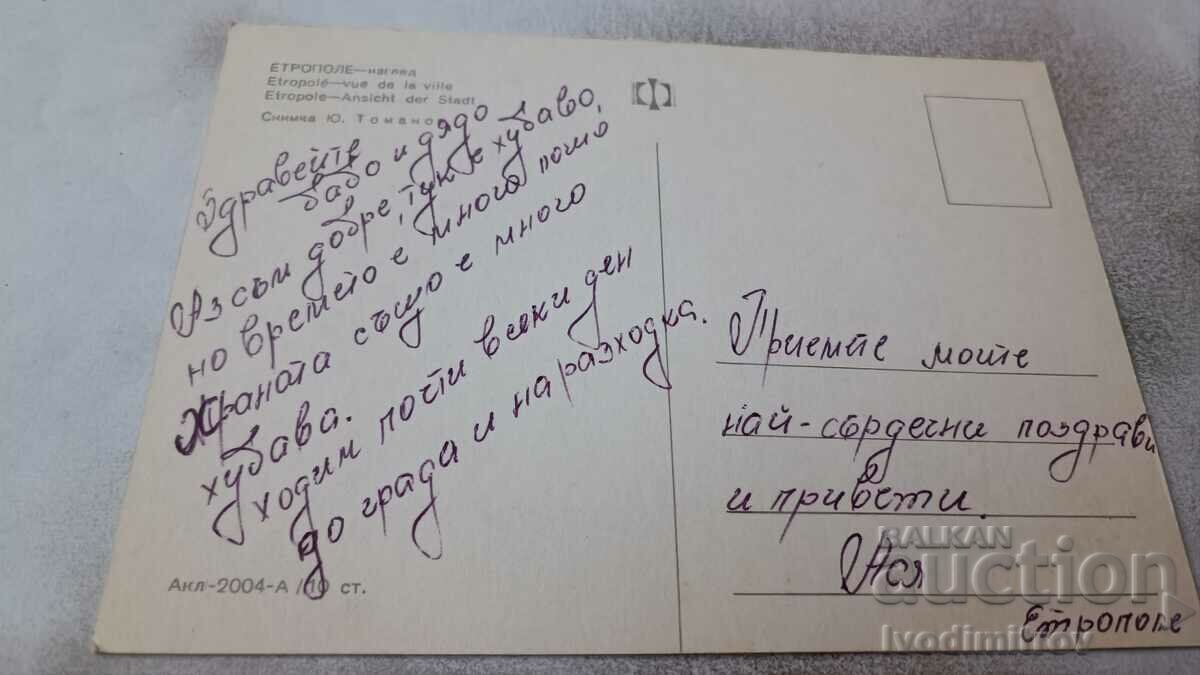 ЕТРОПОЛЕ—изглед
Etropolé—vue de la ville
Etropole—Ansicht der Stadt
Снимка Ю. Томано
Здравейте
бабо и дядо
Аз съм добре, тук е хубаво,
но времето е много лошо
Храната също е много
хубава.
ходим почти всеки ден
до града и на разходка.
Акл-2004-А / 10 ст.
Приемте моите
най-сърдечни поздрави
и привети.
Ася
Етрополе
BALKAN
auction
Ivodimitrov